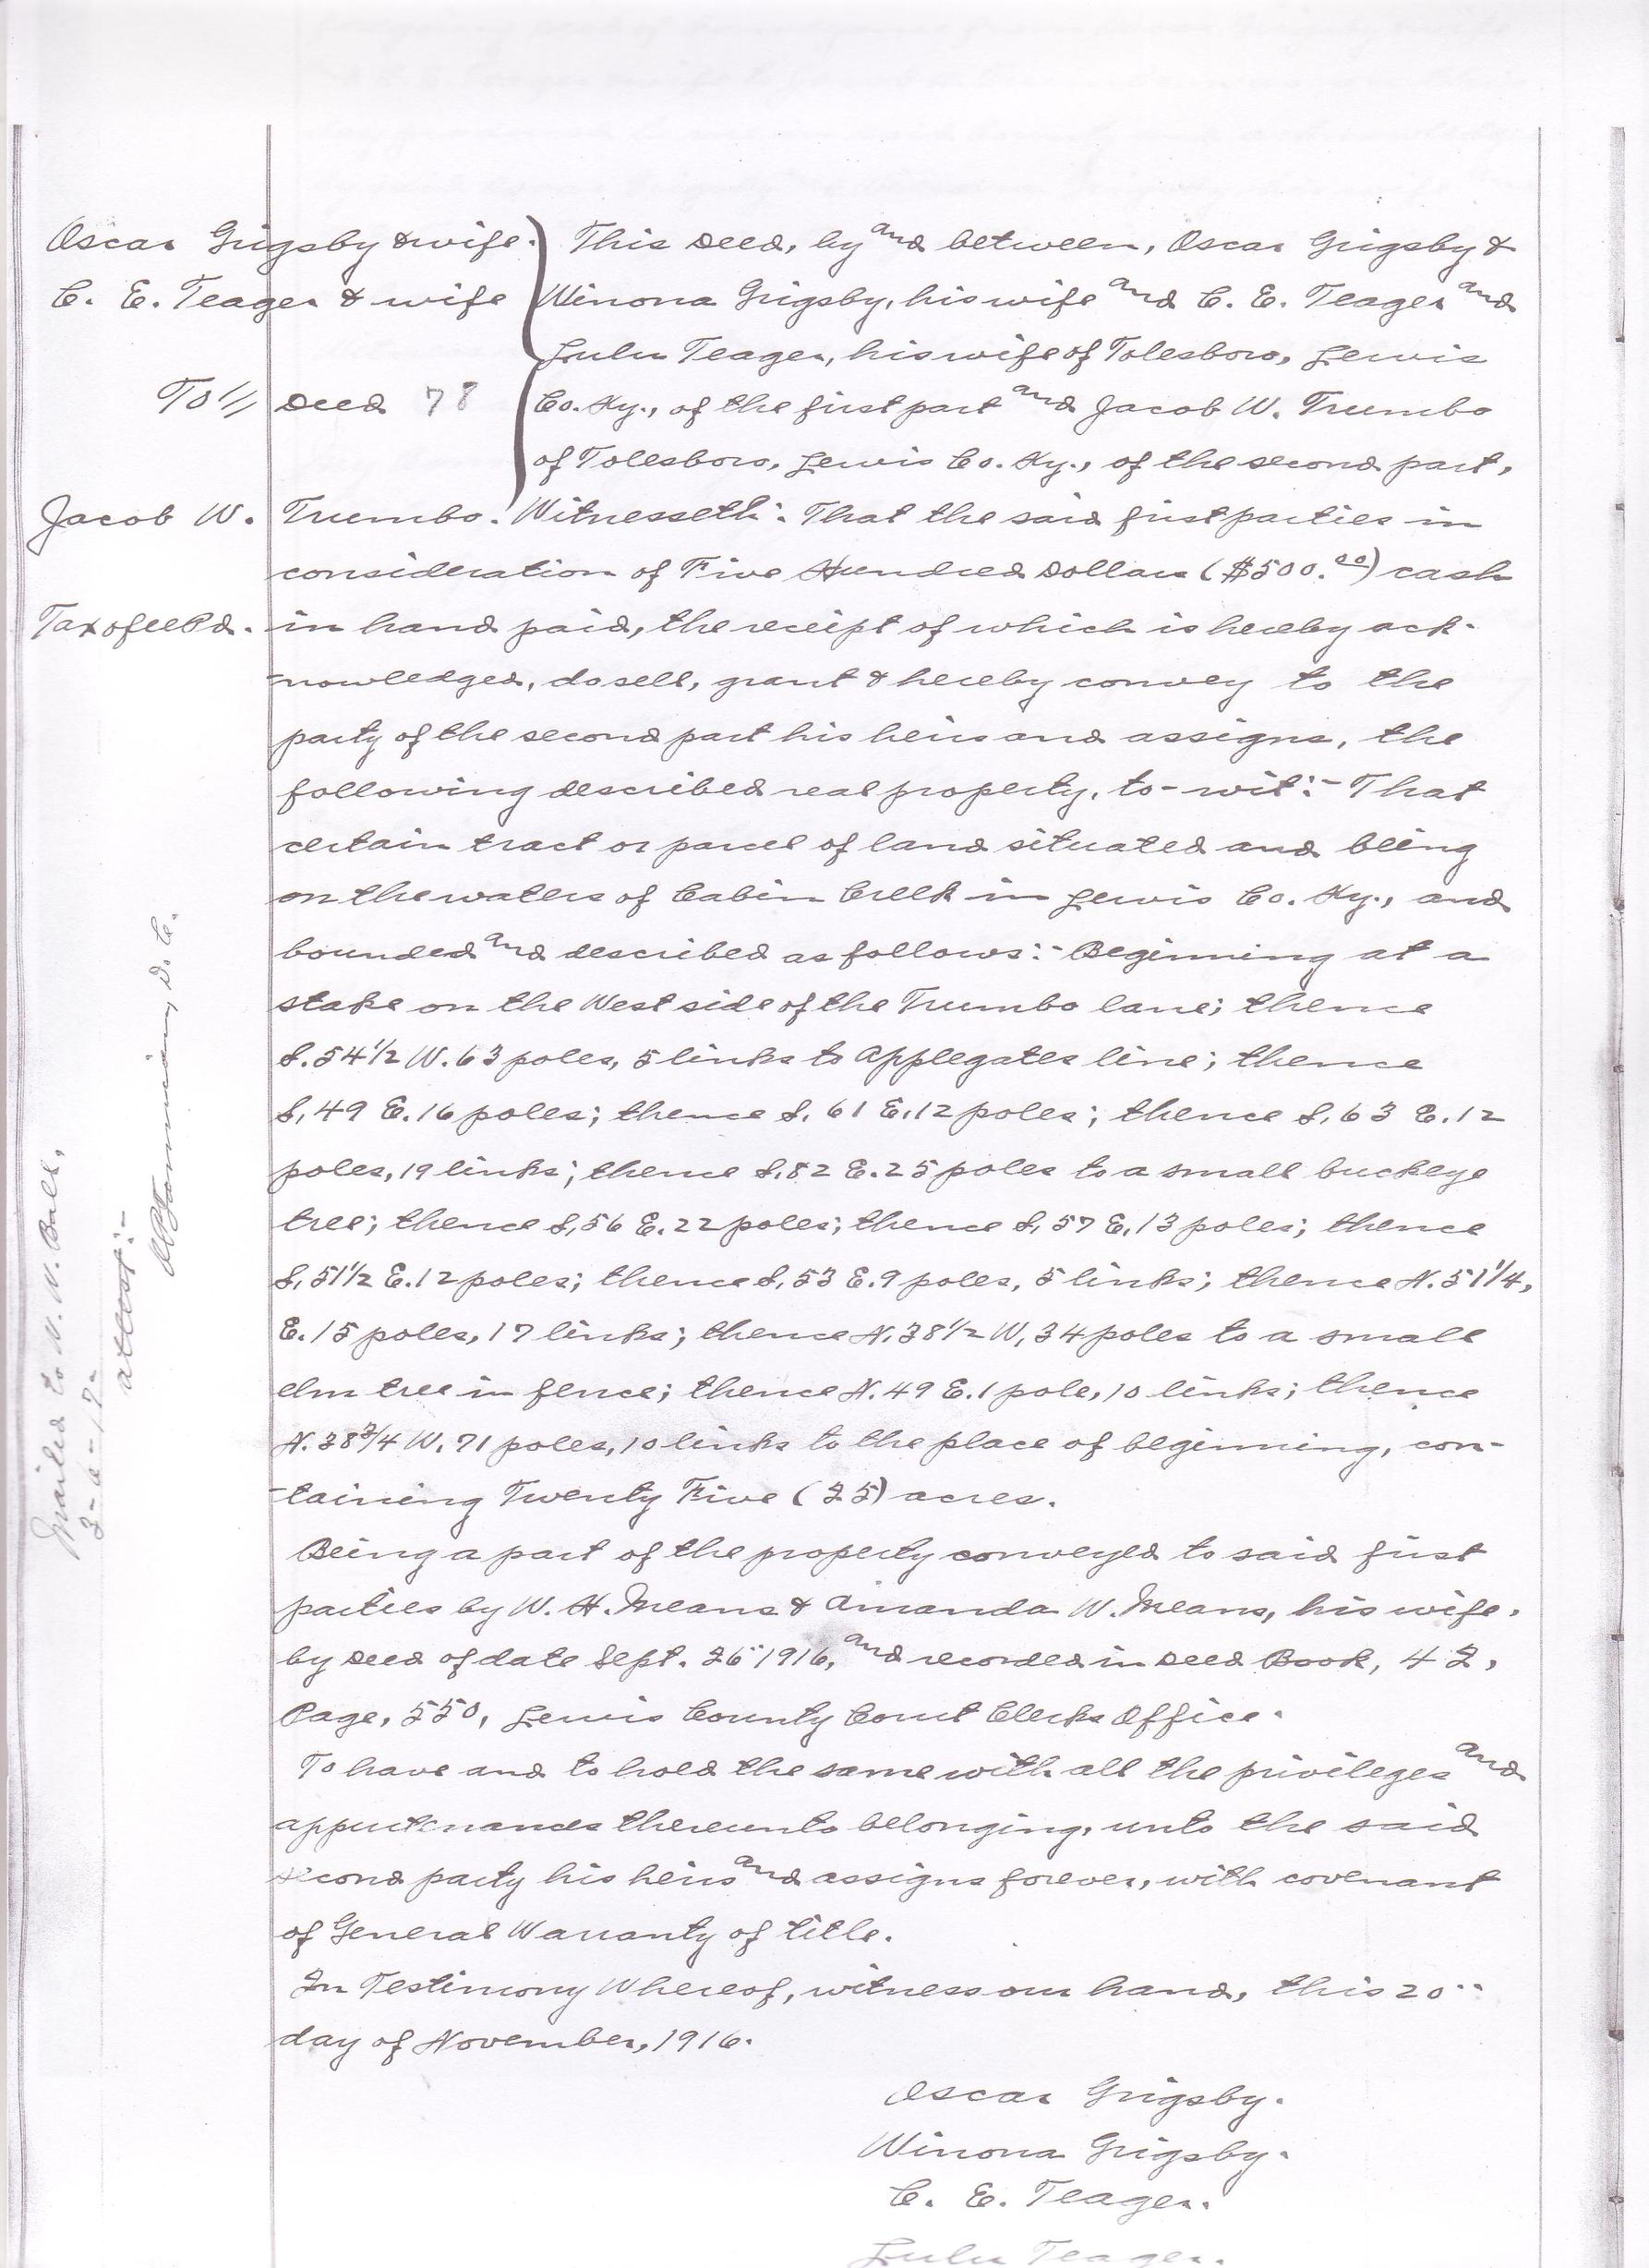 Oscar Grigsby & wife.
C. E. Teager & wife
To // Deed 78
Jacob W. Trumbo.
Tax of ee Pd.
This Deed, by and between, Oscar Grigsby &
Winona Grigsby, his wife and C. E. Teager and
Lulu Teager, his wife of Tolesboro, Lewis
Co. Ky., of the first part and Jacob W. Trumbo
of Tolesboro, Lewis Co. Ky., of the second part,
Witnesseth: That the said first parties in
consideration of Five Hundred Dollars ($500.00) cash
in hand paid, the receipt of which is hereby ack-
nowledged, do sell, grant & hereby convey to the
party of the second part his heirs and assigns, the
following described real property, to-wit:- That
certain tract or parcel of land situated and being
on the waters of Cabin Creek in Lewis Co. Ky., and
bounded and described as follows:- Beginning at a
stake on the West side of the Trumbo lane; thence
S. 54 1/2 W. 63 poles, 5 links to Applegates line; thence
S, 49 E. 16 poles; thence S. 61 E, 12 poles; thence S, 63 E. 12
poles, 19 links; thence S, 82 E. 25 poles to a small buckeye
tree; thence S, 56 E. 22 poles; thence S, 57 E, 13 poles; thence
S, 51 1/2 E. 12 poles; thence S, 53 E. 9 poles, 5 links; thence N. 51 1/4,
E. 15 poles, 17 links; thence N, 38 1/2 W, 34 poles to a small
elm tree in fence; thence N. 49 E. 1 pole, 10 links; thence
N. 38 3/4 W. 71 poles, 10 links to the place of beginning, con-
-taining Twenty Five (25) acres.
Being a part of the property conveyed to said first
parties by W. H. Means & Amanda W. Means, his wife,
by deed of date Sept. 26" 1916, and recorded in Deed Book, 42,
Page, 550, Lewis County Court Clerks Office.
To have and to hold the same with all the privileges and
appurtenances thereunto belonging, unto the said
second party his heirs and assigns forever, with covenant
of General Warranty of title.
In Testimony Whereof, witness our hand, this 20"
day of November, 1916.
Oscar Grigsby.
Winona Grigsby.
C. E. Teager.
Lulu Teager.
Mailed to W. W. Ball,
3-6-17-
attest:-
D. C.